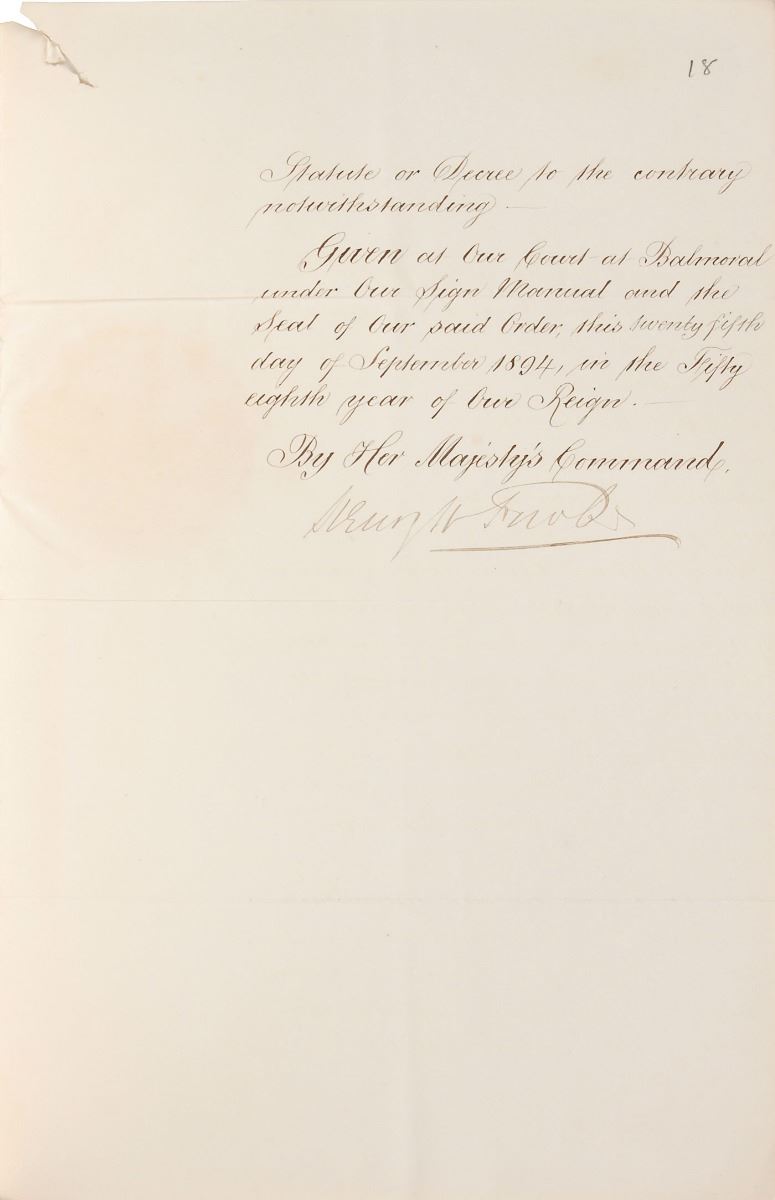 18
Statute or Decree to the contrary
notwithstanding —
Given at Our Court at Balmoral
under Our Sign Manual and the
Seal of Our said Order, this twenty fifth
day of September 1894, in the Fifty
eighth year of Our Reign. —
By Her Majesty's Command,
Henry H Fowler